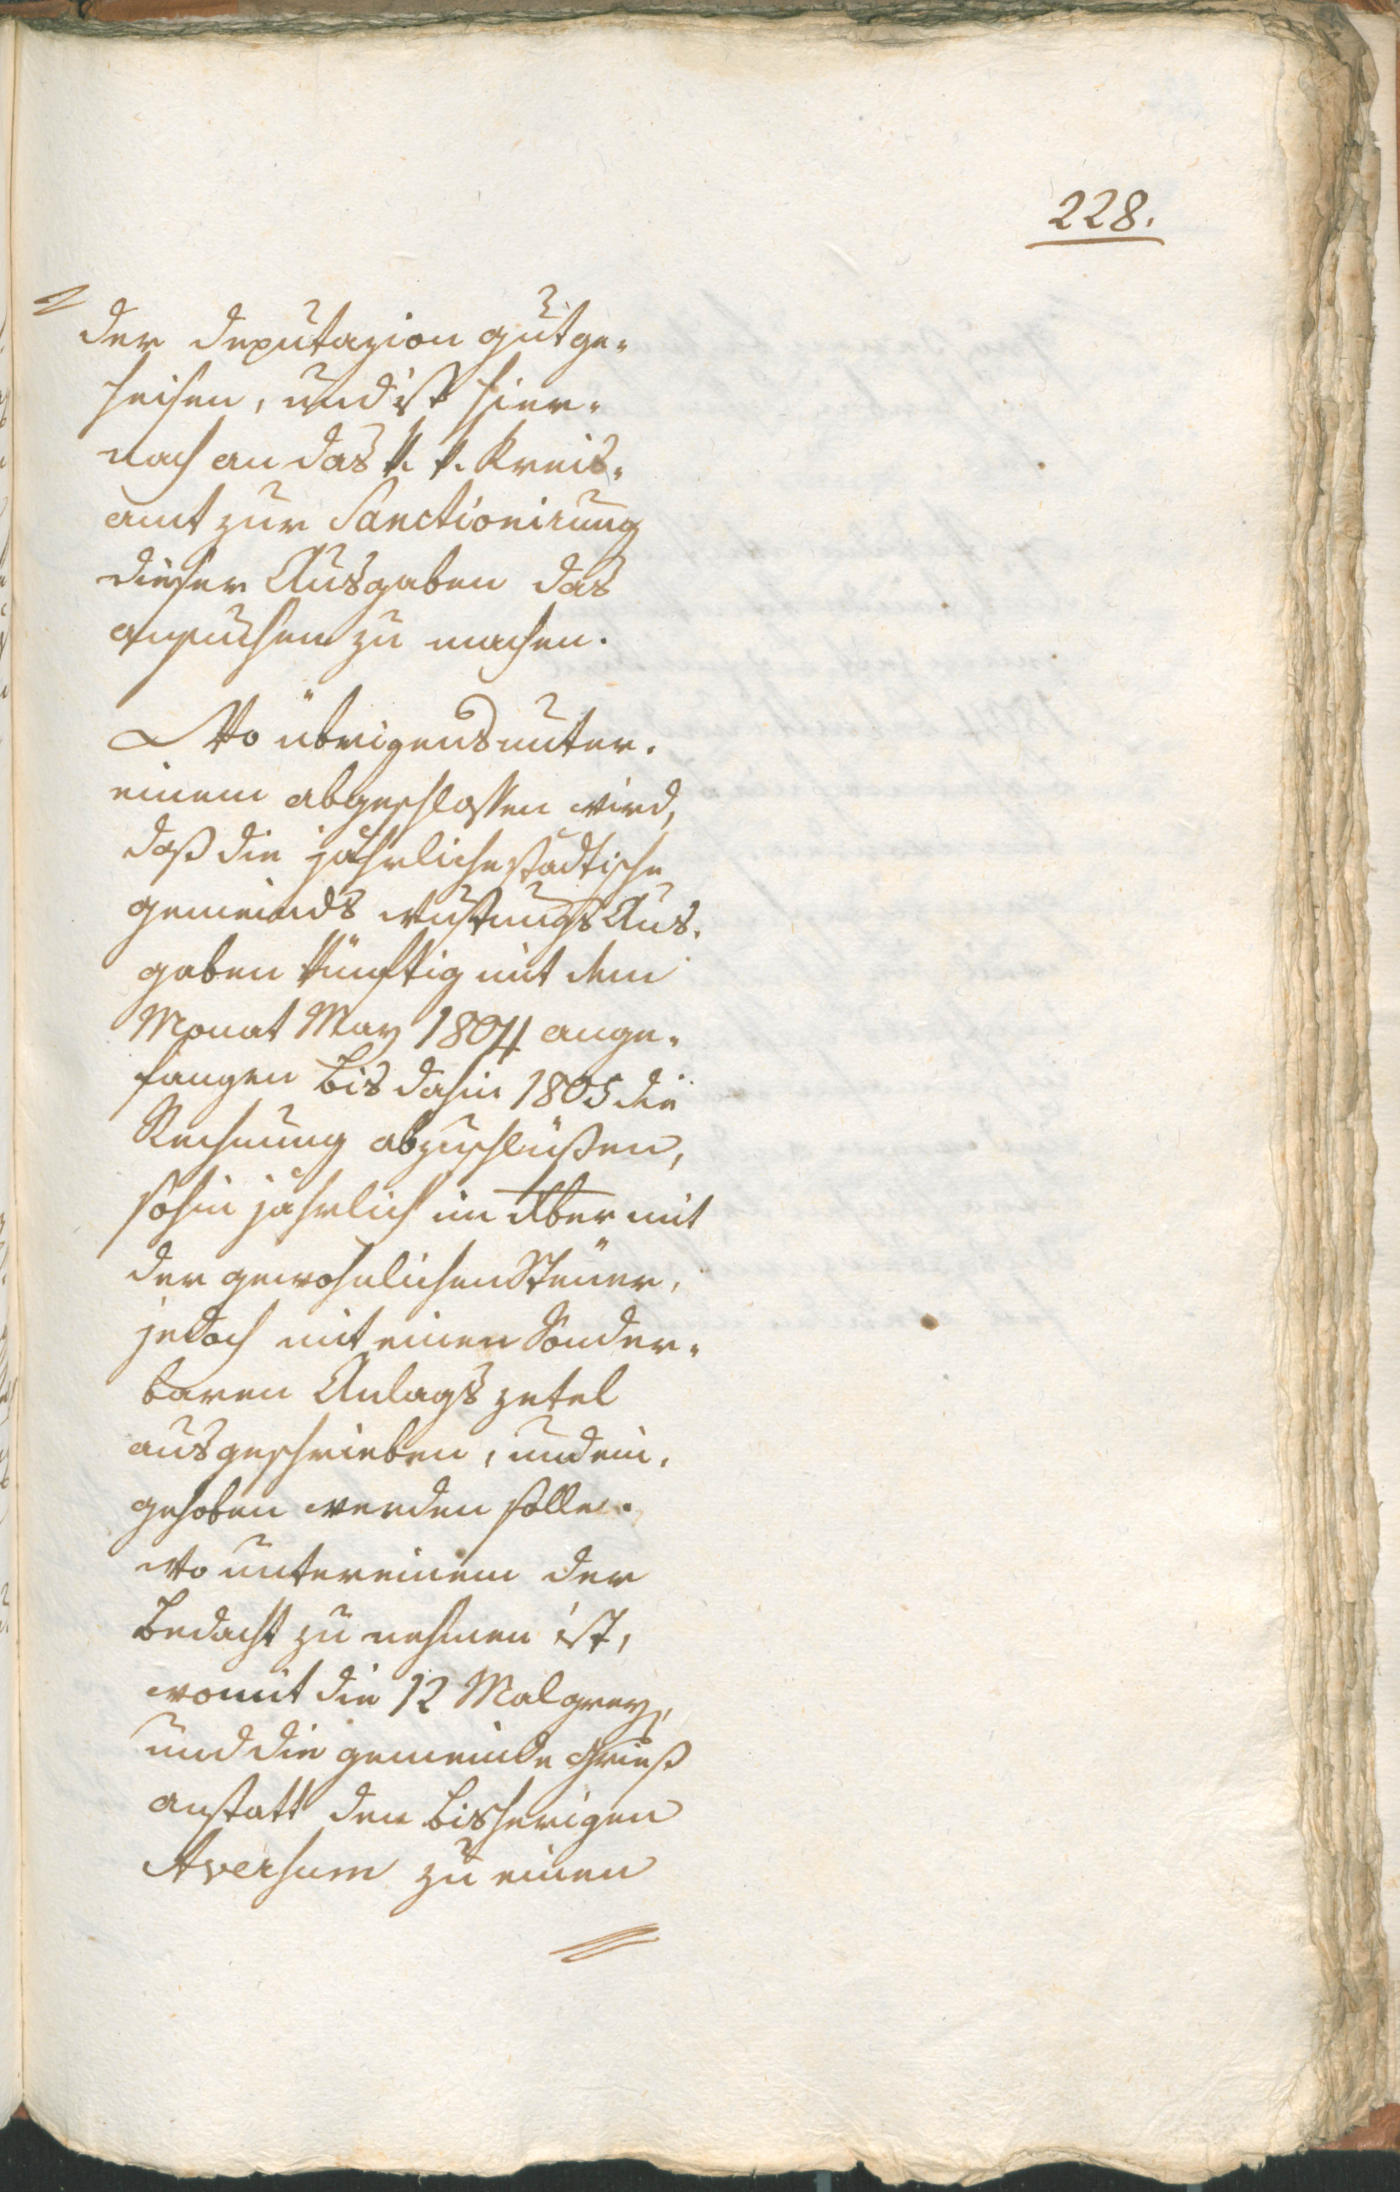 228.
der Deputazion gutge-
heisen, und ist hier-
nach an das k. k. Kreis-
amt zur Sanctionirung
dieser Ausgaben das
ansuchen zu machen.
Wo übrigens unter-
einem abgeschlossen wird,
daß die jährliche städtische
gemeinds wustungs Aus-
gaben künftig mit dem
Monat May 1804 ange-
fangen bis dahin 1805 die
Rechnung abzuschlüßen,
sohin jährlich im
mit
der gewohnlichen Steuer,
jedoch mit einen Sonder-
baren Anlags zetel
ausgeschrieben, und ein-
gehoben werden solle.
Wo untereinem der
bedacht zu nehmen ist,
womit die 12 Malgrey,
und die gemeinde Grieß
anstatt den bisherigen
Aversum zu einen